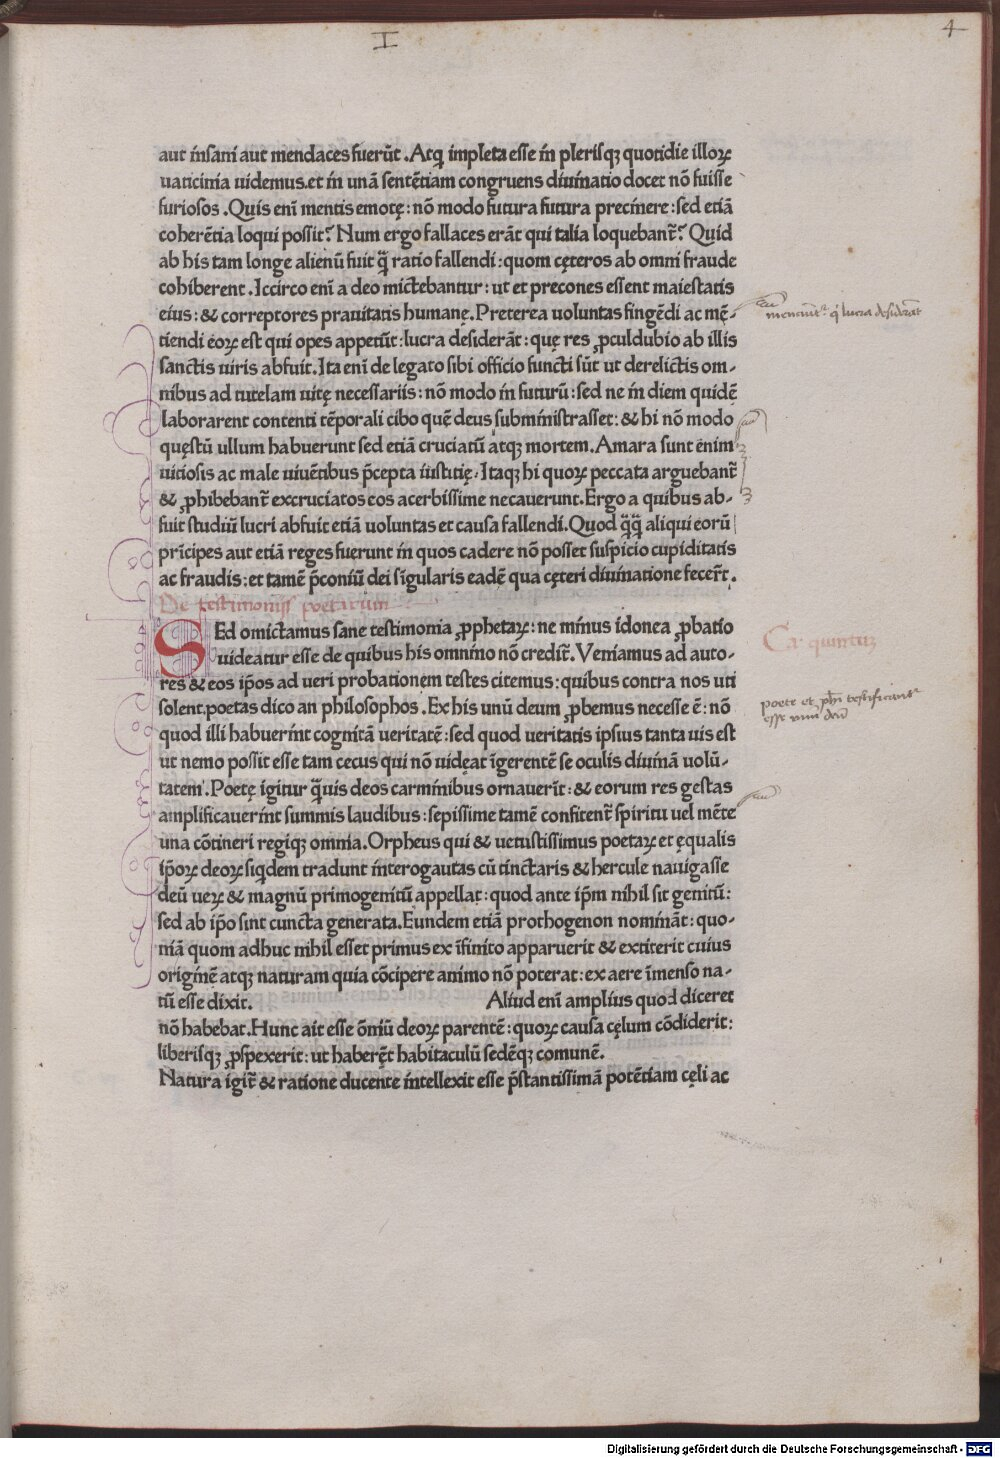 I
4
aut insani aut mendaces fuerūt. Atq impleta esse in plerisqꝫ quotidie illoꝝ
uaticinia uidemus.et in unā sentētiam congruens diuinatio docet nō fuisse
furiosos. Quis enī mentis emotę: nō modo futura futura precinere: sed etiā
coherētia loqui possit? Num ergo fallaces erāt qui talia loquebanť? Quid
ab his tam longe alienū fuit q̄ ratio fallendi: quom cęteros ab omni fraude
cohiberent. Iccirco enī a deo mictebantur: ut et precones essent maiestatis
eius: & correptores prauitatis humanę. Preterea uoluntas fingēdi ac mē-
tiendi eoꝝ est qui opes appetūt: lucra desiderāt: quę res ꝓculdubio ab illis
sanctis uiris abfuit. Ita enī de legato sibi officio functi sūt ut derelictis om-
nibus ad tutelam uitę necessariis: nō modo in futurū: sed ne in diem quidē
laborarent contenti tēporali cibo quē deus subministrasset: & hi nō modo
quęstū ullum habuerunt sed etiā cruciatū atqꝫ mortem. Amara sunt enim
uitiosis ac male uiuētibus p̄cepta iustitię. Itaqꝫ hi quoꝝ peccata arguebanť
& ꝓhibebanť excruciatos eos acerbissime necauerunt. Ergo a quibus ab-
fuit studiū lucri abfuit etiā uoluntas et causa fallendi. Quod q̄q̄ aliqui eorū
prīcipes aut etiā reges fuerunt in quos cadere nō posset suspicio cupiditatis
ac fraudis: et tamē p̄coniū dei sīgularis eadē qua cęteri diuinatione feceř.
De testimoniis poetarum
SEd omictamus sane testimonia ꝓphetaꝝ: ne minus idonea ꝓbatio
uideatur esse de quibus his omnino nō crediť. Veniamus ad auto-
res & eos ip̄os ad ueri probationem testes citemus: quibus contra nos uti
solent.poetas dico an philosophos. Ex his unū deum ꝓbemus necesse ē: nō
quod illi habuerint cognitā ueritatē: sed quod ueritatis ipsius tanta uis est
ut nemo possit esse tam cecus qui nō uideat īgerentē se oculis diuinā uolū-
tatem. Poetę igitur q̄uis deos carminibus ornauerīt: & eorum res gestas
amplificauerint summis laudibus: sepissime tamē confitenť spiritu uel mēte
una cōtineri regiqꝫ omnia. Orpheus qui & uetustissimus poetaꝝ et ęqualis
ip̄oꝝ deoꝝ siqdem tradunt interogautas cū tinctaris & hercule nauigasse
deū ueꝝ & magnū primogenitū appellat: quod ante ip̄m nihil sit genitū:
sed ab ip̄o sint cuncta generata. Eundem etiā prothogenon nomināt: quo-
niā quom adhuc nihil esset primus ex īfinito apparuerit & extiterit cuius
originē atqꝫ naturam quia cōcipere animo nō poterat: ex aere īmenso na-
tū esse dixit. Aliud enī amplius quod diceret
nō habebat. Hunc ait esse ōniū deoꝝ parentē: quoꝝ causa cęlum cōdiderit:
liberisqꝫ ꝓspexerit: ut haberēt habitaculū sedēqꝫ comunē.
Natura igiť & ratione ducente intellexit esse p̄stantissimā potētiam cęli ac
menciunť qi lucra desiderāt
Ca quintuꝫ
poete et phi testificanť
esse unū deū
Digitalisierung gefördert durch die Deutsche Forschungsgemeinschaft - DFG